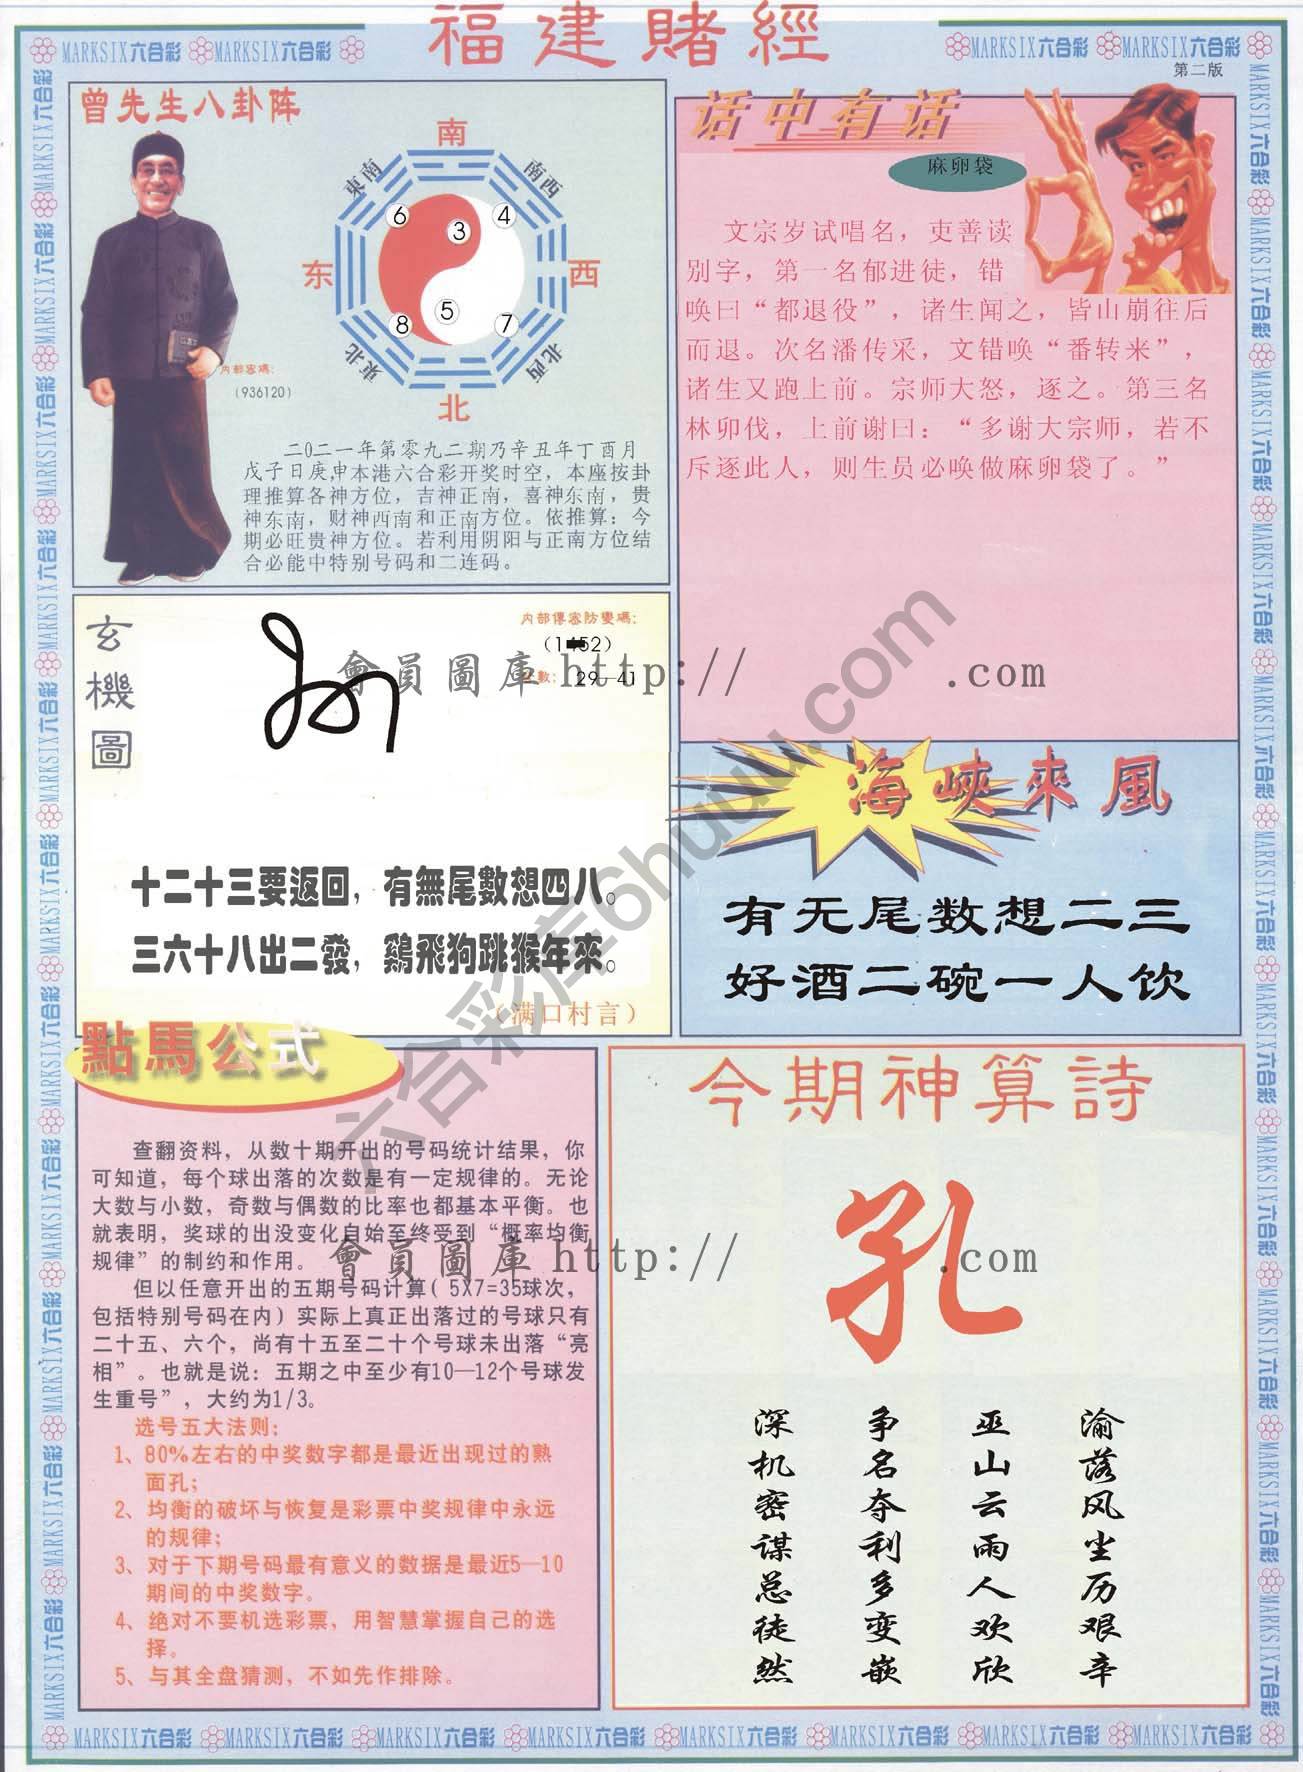 福建賭經
MARKSIX六合彩 MARKSIX六合彩
MARKSIX六合彩 MARKSIX六合彩
第二版
曾先生八卦阵
南
東南
南西
6
3
4
东
西
5
8
7
東北
北西
北
内部密碼：
（936120）
二0二一年第零九二期乃辛丑年丁酉月
戊子日庚,申本港六合彩开奖时空，本座按卦
理推算各神方位，吉神正南，喜神东南，贵
神东南，财神西南和正南方位。依推算：今
期必旺贵神方位。若利用阴阳与正南方位结
合必能中特别号码和二连码。
话中有话
麻卵袋
文宗岁试唱名，吏善读
别字，第一名郁进徒，错
唤曰“都退役”，诸生闻之，皆山崩往后
而退。次名潘传采，文错唤“番转来”，
诸生又跑上前。宗师大怒，逐之。第三名
林卯伐，上前谢曰：“多谢大宗师，若不
斥逐此人，则生员必唤做麻卵袋了。”
玄機圖
内部傳密防變碼：
數：29—41
會員圖庫 http:// .com
十二十三要返回，有無尾數想四八。
三六十八出二發，鷄飛狗跳猴年來。
（满口村言）
海峽來風
有无尾数想二三
好酒二碗一人饮
點馬公式
查翻资料，从数十期开出的号码统计结果，你
可知道，每个球出落的次数是有一定规律的。无论
大数与小数，奇数与偶数的比率也都基本平衡。也
就表明，奖球的出没变化自始至终受到“概率均衡
规律”的制约和作用。
但以任意开出的五期号码计算( 5X7=35球次，
包括特别号码在内）实际上真正出落过的号球只有
二十五、六个，尚有十五至二十个号球未出落“亮
相”。也就是说：五期之中至少有10—12个号球发
生重号”，大约为1/3。
选号五大法则：
1、80%左右的中奖数字都是最近出现过的熟
面孔；
2、均衡的破坏与恢复是彩票中奖规律中永远
的规律；
3、对于下期号码最有意义的数据是最近5—10
期间的中奖数字。
4、绝对不要机选彩票，用智慧掌握自己的选
择。
5、与其全盘猜测，不如先作排除。
會員圖庫 http:// .com
今期神算詩
孔
渝落风尘历艰辛
巫山云雨人欢欣
争名夺利多变嵌
深机密谋总徒然
六合彩库6huuu.com
MARKSIX六合彩 MARKSIX六合彩 MARKSIX六合彩 MARKSIX六合彩 MARKSIX六合彩 MARKSIX六合彩 MARKSIX六合彩 MARKSIX六合彩